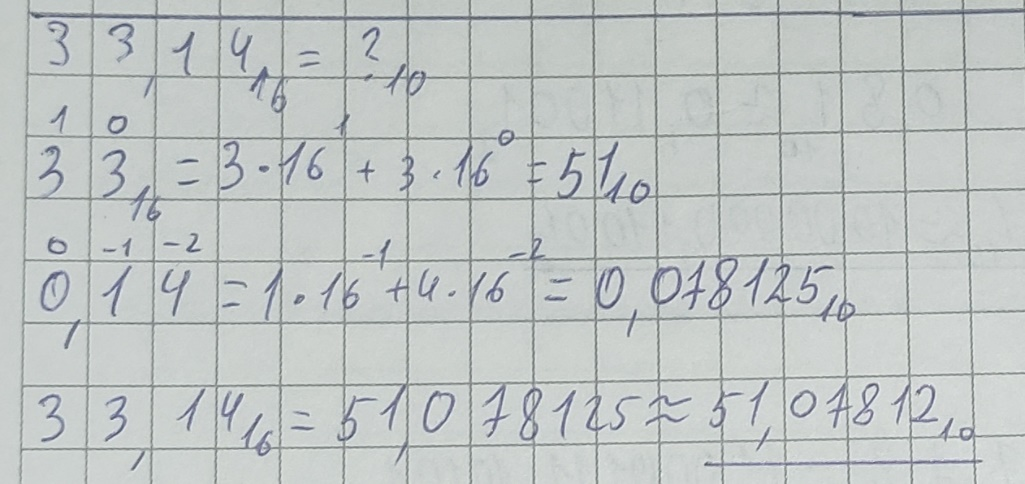 33,14₁₆ = ?₁₀
1 0
33₁₆ = 3·16¹ + 3·16⁰ = 51₁₀
0 -1 -2
0,14 = 1·16⁻¹ + 4·16⁻² = 0,078125₁₀
33,14₁₆ = 51,078125 ≈ 51,07812₁₀